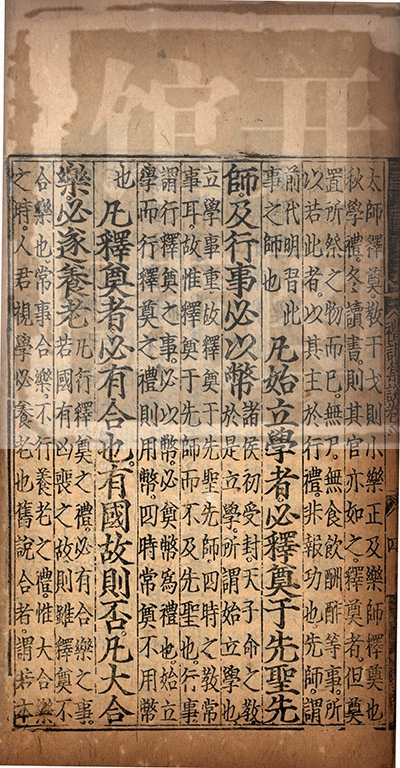 太師釋奠教干戈則小樂正及樂師釋奠也
秋學禮冬讀書則其官亦如之釋奠者但奠
置所祭之物而已無尸無食飲酬酢等事所
以若此者以其主於行禮非報功也先師謂
前代明習此
事之師也
凡始立學者必釋奠于先聖先
師及行事必以幣
諸侯初受封天子命之教
於是立學所謂始立學也
立學事重故釋奠于先聖先師四時之教常
事耳故惟釋奠于先師而不及先聖也行事
謂行釋奠之事必以幣必奠幣爲禮也始立
學而行釋奠之禮則用幣四時常奠不用幣
也
凡釋奠者必有合也有國故則否凡大合
樂必遂養老
凡行釋奠之禮必有合樂之事
若國有凶喪之故則雖釋奠不
合樂也常事合樂不行養老之禮惟大合樂
之時人君視學必養老也舊說合者謂若本